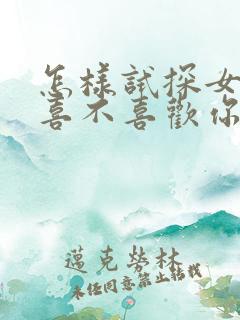 怎樣試探女
喜不喜歡你
邁克勞林
未經同意禁止轉載